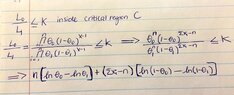 L₀/L₁ ≤ K inside critical region C
L₀/L₁ = πθ₀(1-θ₀)^(x-1) / πθ₁(1-θ₁)^(x-1) ≤ K ⇒ θ₀ⁿ(1-θ₀)^(Σx-n) / θ₁ⁿ(1-θ₁)^(Σx-n) ≤ K
⇒ n[ln θ₀ - ln θ₁] + (Σx-n)[ln(1-θ₀) - ln(1-θ₁)]